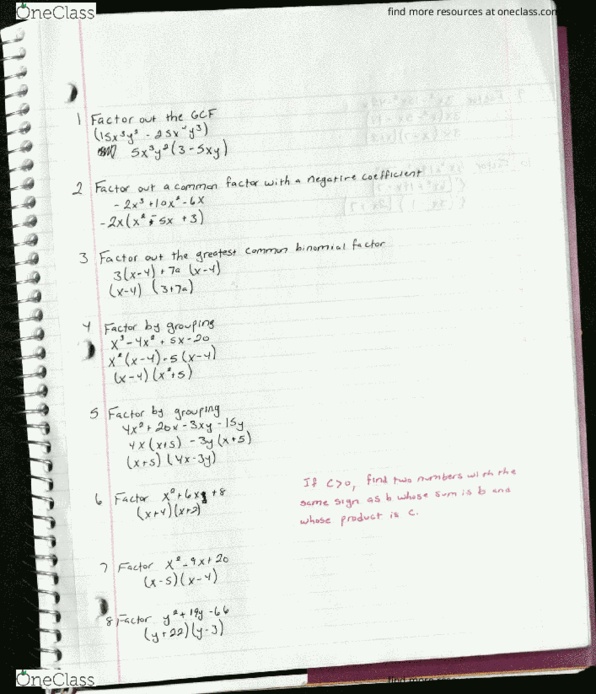 OneClass
find more resources at oneclass.com
1 Factor out the GCF
(15x³y² - 25x⁴y³)
5x³y²(3-5xy)
2 Factor out a common factor with a negative coefficient
-2x³+10x²-6x
-2x(x²-5x+3)
3 Factor out the greatest common binomial factor
3(x-4)+7a(x-4)
(x-4) (3+7a)
4 Factor by grouping
x³-4x²+5x-20
x²(x-4)-5(x-4)
(x-4)(x²+5)
5 Factor by grouping
4x²+20x-3xy-15y
4x(x+5) -3y(x+5)
(x+5)(4x-3y)
6 Factor x²+6x+8
(x+4)(x+2)
If C>0, find two numbers with the
same sign as b whose sum is b and
whose product is c.
7 Factor x²-9x+20
(x-5)(x-4)
8 Factor y²+19y-66
(y+22)(y-3)
OneClass